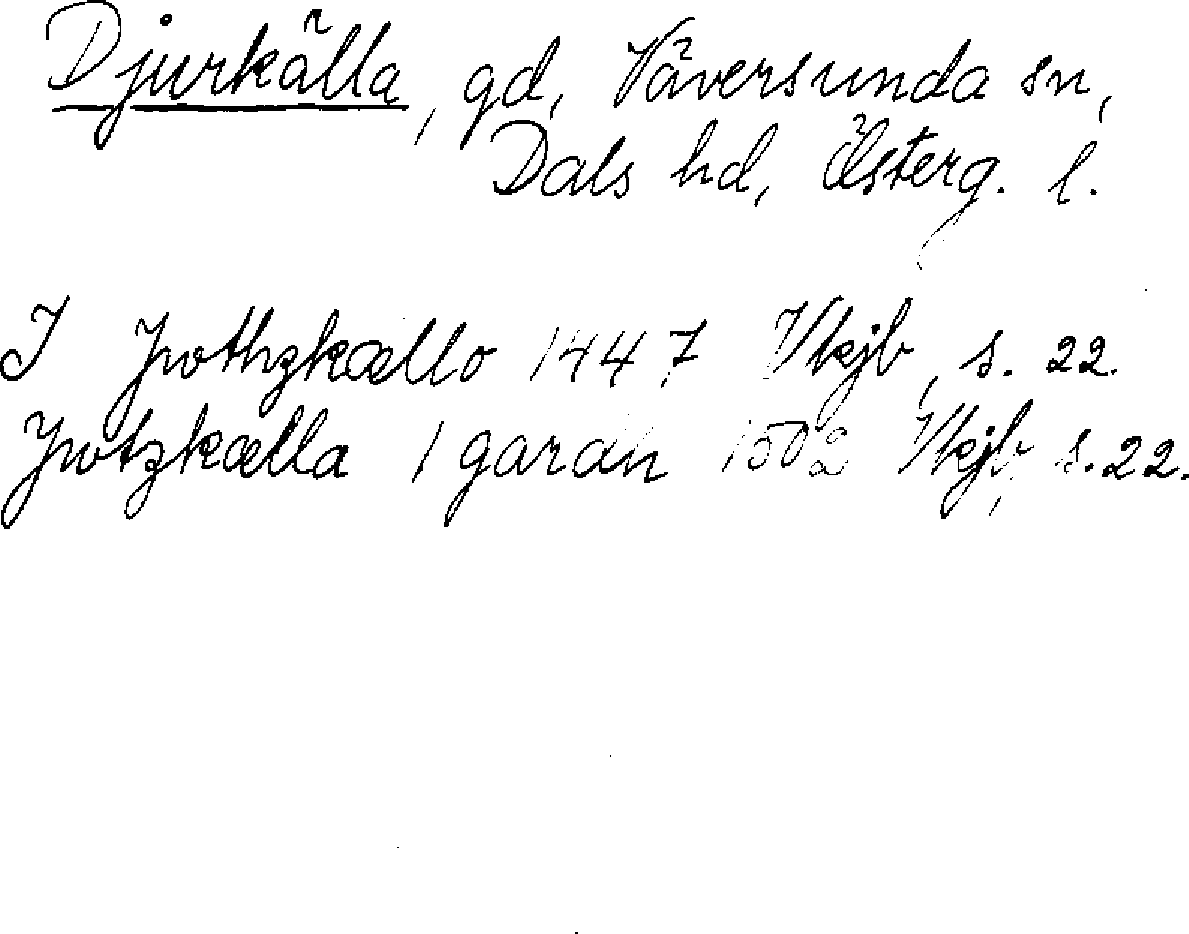 Djurkälla, gd, Väversunda sn,
Dals hd, Österg. l.
I Jwothzkællo 1447 Vkjb, s. 22.
Jwotzkælla 1 gardh 1502 Vkjb, s. 22.